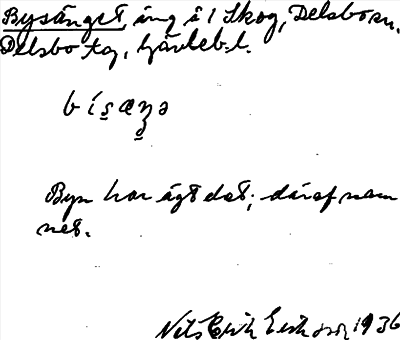 Bysänget, äng å 1 Skog, Delsbo sn.
Delsbo tg, Gävleb.l.
Byn har ägt det; däraf nam
net.
Nils Erik Eriksson 1936